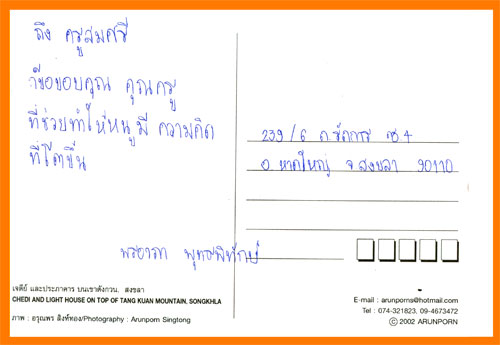 ถึง ครูสมศรี
ขอขอบคุณ คุณครู
ที่ช่วยทำให้หนูมี ความคิด
ที่โตขึ้น
พรอาภา พุทธพิทักษ์
239/6 ถ.รัถการ ซ 4
อ. หาดใหญ่ จ.สงขลา 90110
เจดีย์ และประภาคาร บนเขาตังกวน. สงขลา
CHEDI AND LIGHT HOUSE ON TOP OF TANG KUAN MOUNTAIN. SONGKHLA
ภาพ : อรุณพร สิงห์ทอง/Photography : Arunporn Singtong
E-mail : arunporns@hotmail.com
Tel : 074-321823, 09-4673472
© 2002 ARUNPORN